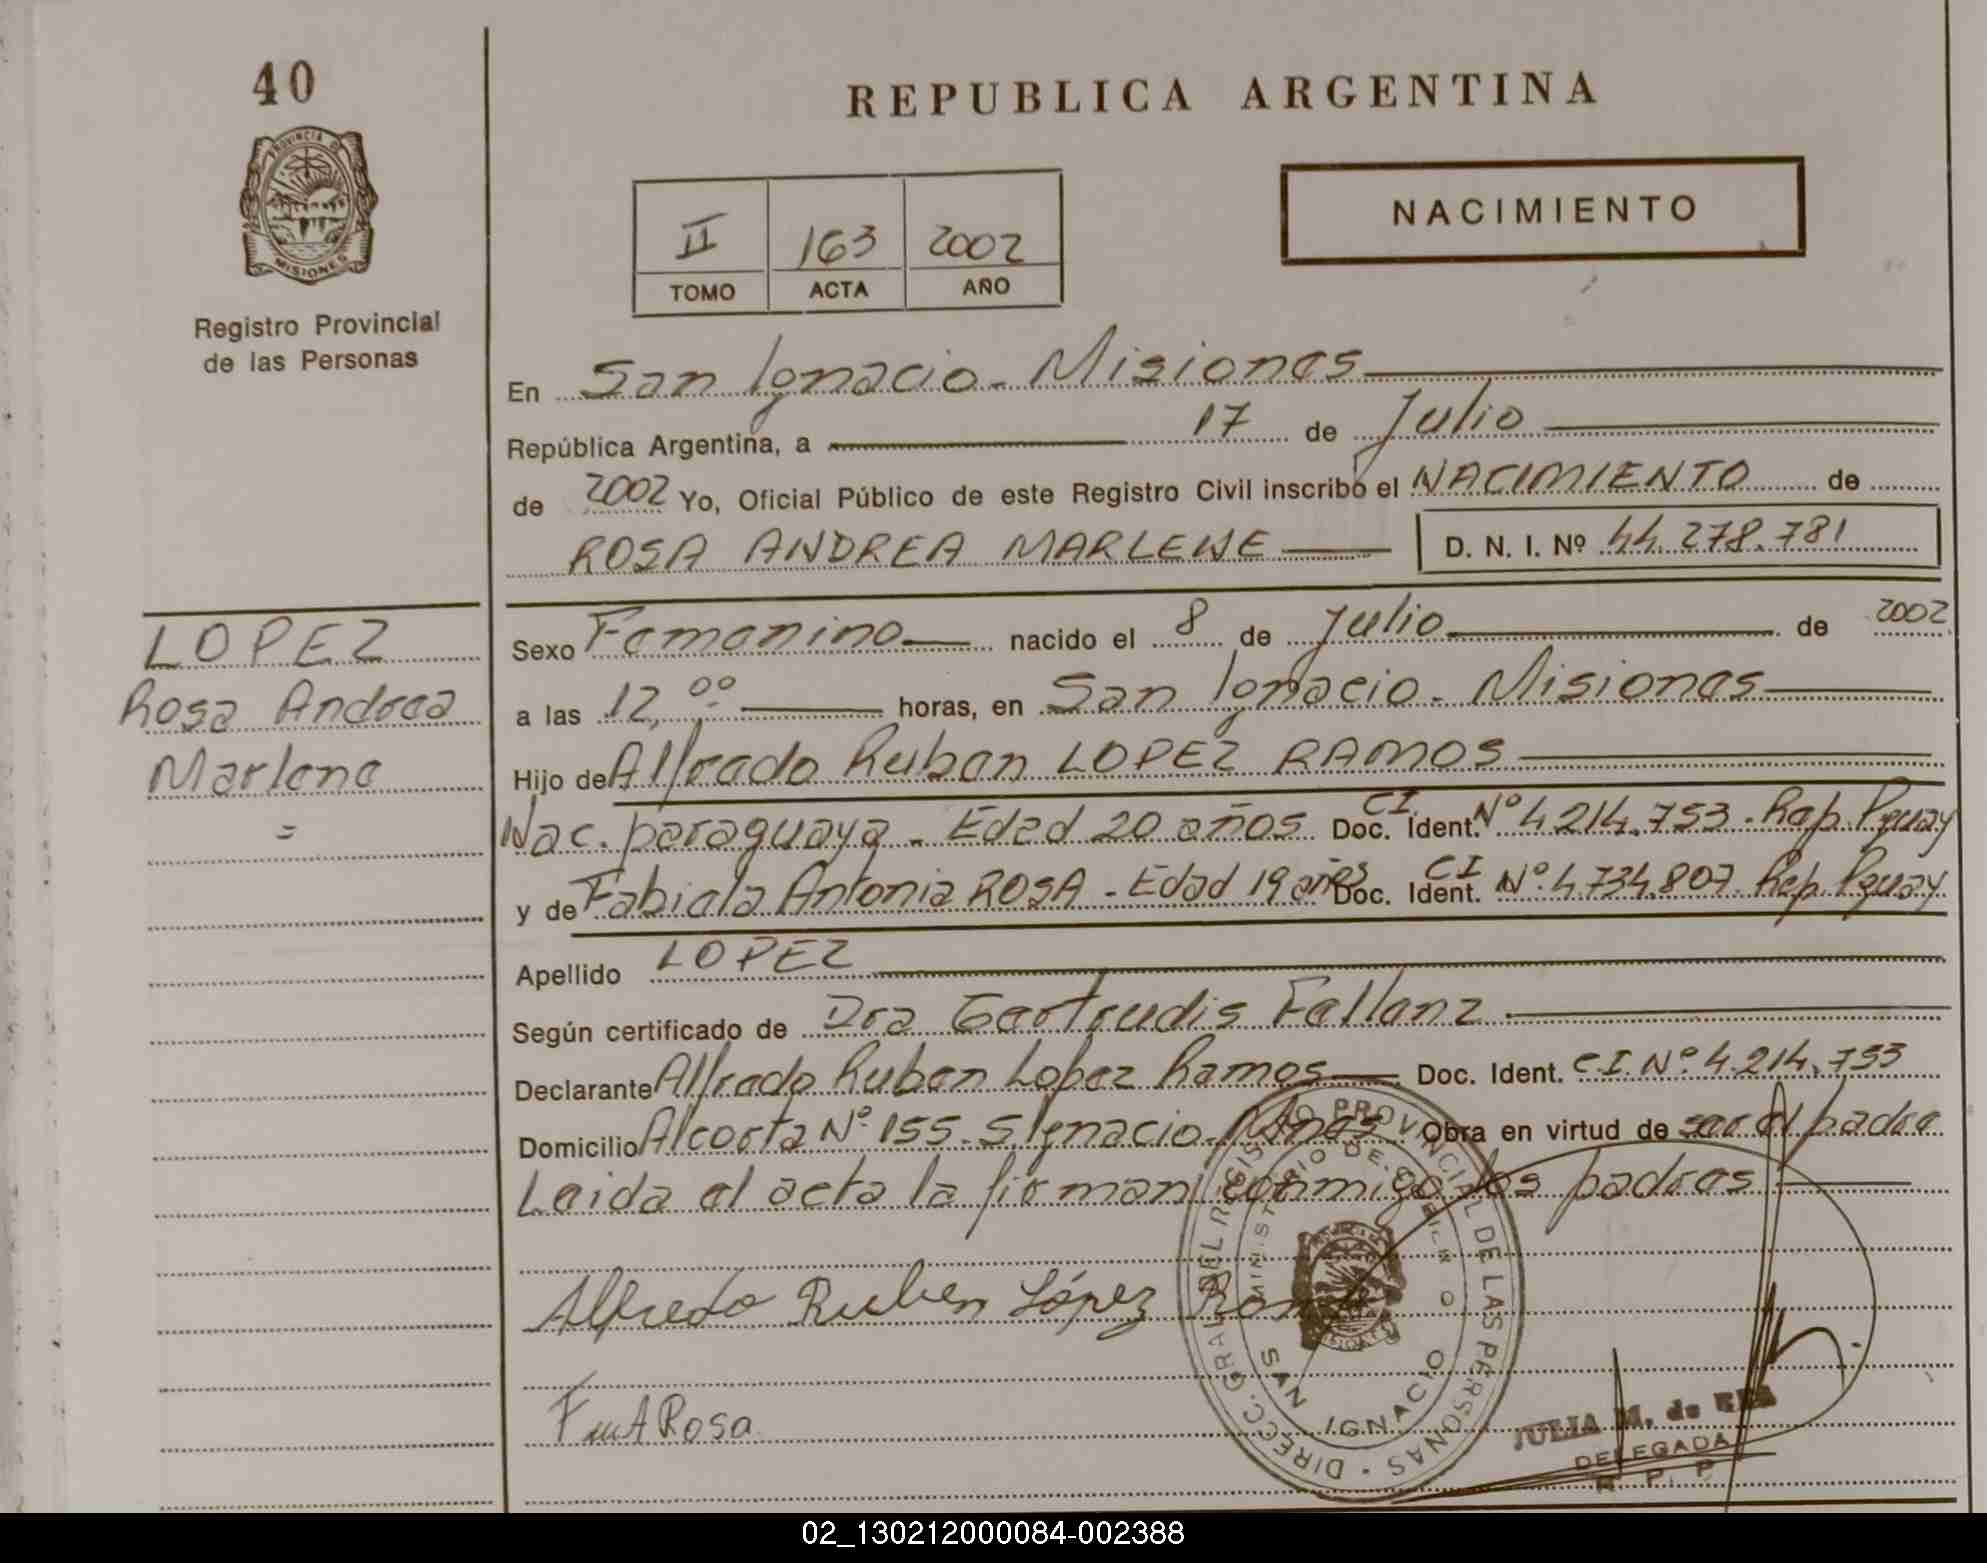 40
REPUBLICA ARGENTINA
PROVINCIA D
MISIONES
Registro Provincial
de las Personas
II 163 2002
TOMO ACTA AÑO
NACIMIENTO
En San Ignacio - Misiones
República Argentina, a 17 de Julio
de 2002 Yo, Oficial Público de este Registro Civil inscribo el NACIMIENTO de
ROSA ANDREA MARLENE D. N. I. Nº 44.278.781
LOPEZ
Rosa Andrea
Marlene
=
Sexo Femenino nacido el 8 de Julio de 2002
a las 12,00 horas, en San Ignacio - Misiones
Hijo de Alfredo Ruben LOPEZ RAMOS
Nac. paraguaya - Edad 20 años Doc. Ident. CI Nº 4214.753. Rep. Pguay
y de Fabiola Antonia ROSA - Edad 19 años Doc. Ident. CI Nº 4.734.807. Rep. Pguay
Apellido LOPEZ
Según certificado de Dra Gertrudis Fallanz
Declarante Alfredo Ruben Lopez Ramos Doc. Ident. C.I. Nº 4.214.753
Domicilio Alcorta Nº 155 - S Ignacio - Mnes Obra en virtud de ser el padre
Leida el acta la firman conmigo los padres
Alfredo Ruben López Ramos
Rosa
DIRECC. GRAL. DEL REGISTRO PROVINCIAL DE LAS PERSONAS
MINISTERIO DE GOBIERNO
SAN IGNACIO
JULIA M. de
DELEGADA
R P P
02_130212000084-002388